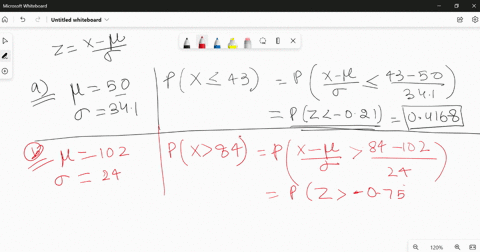 Microsoft Whiteboard
Untitled whiteboard
z = x-μ/σ
a) μ = 50
σ = 34.1
P(X ≤ 43) = P(x-μ/σ ≤ 43-50/34.1)
= P(Z < -0.21) = 0.4168
b) μ = 102
σ = 24
P(X > 84) = P(x-μ/σ > 84-102/24)
= P(Z > -0.75
120%